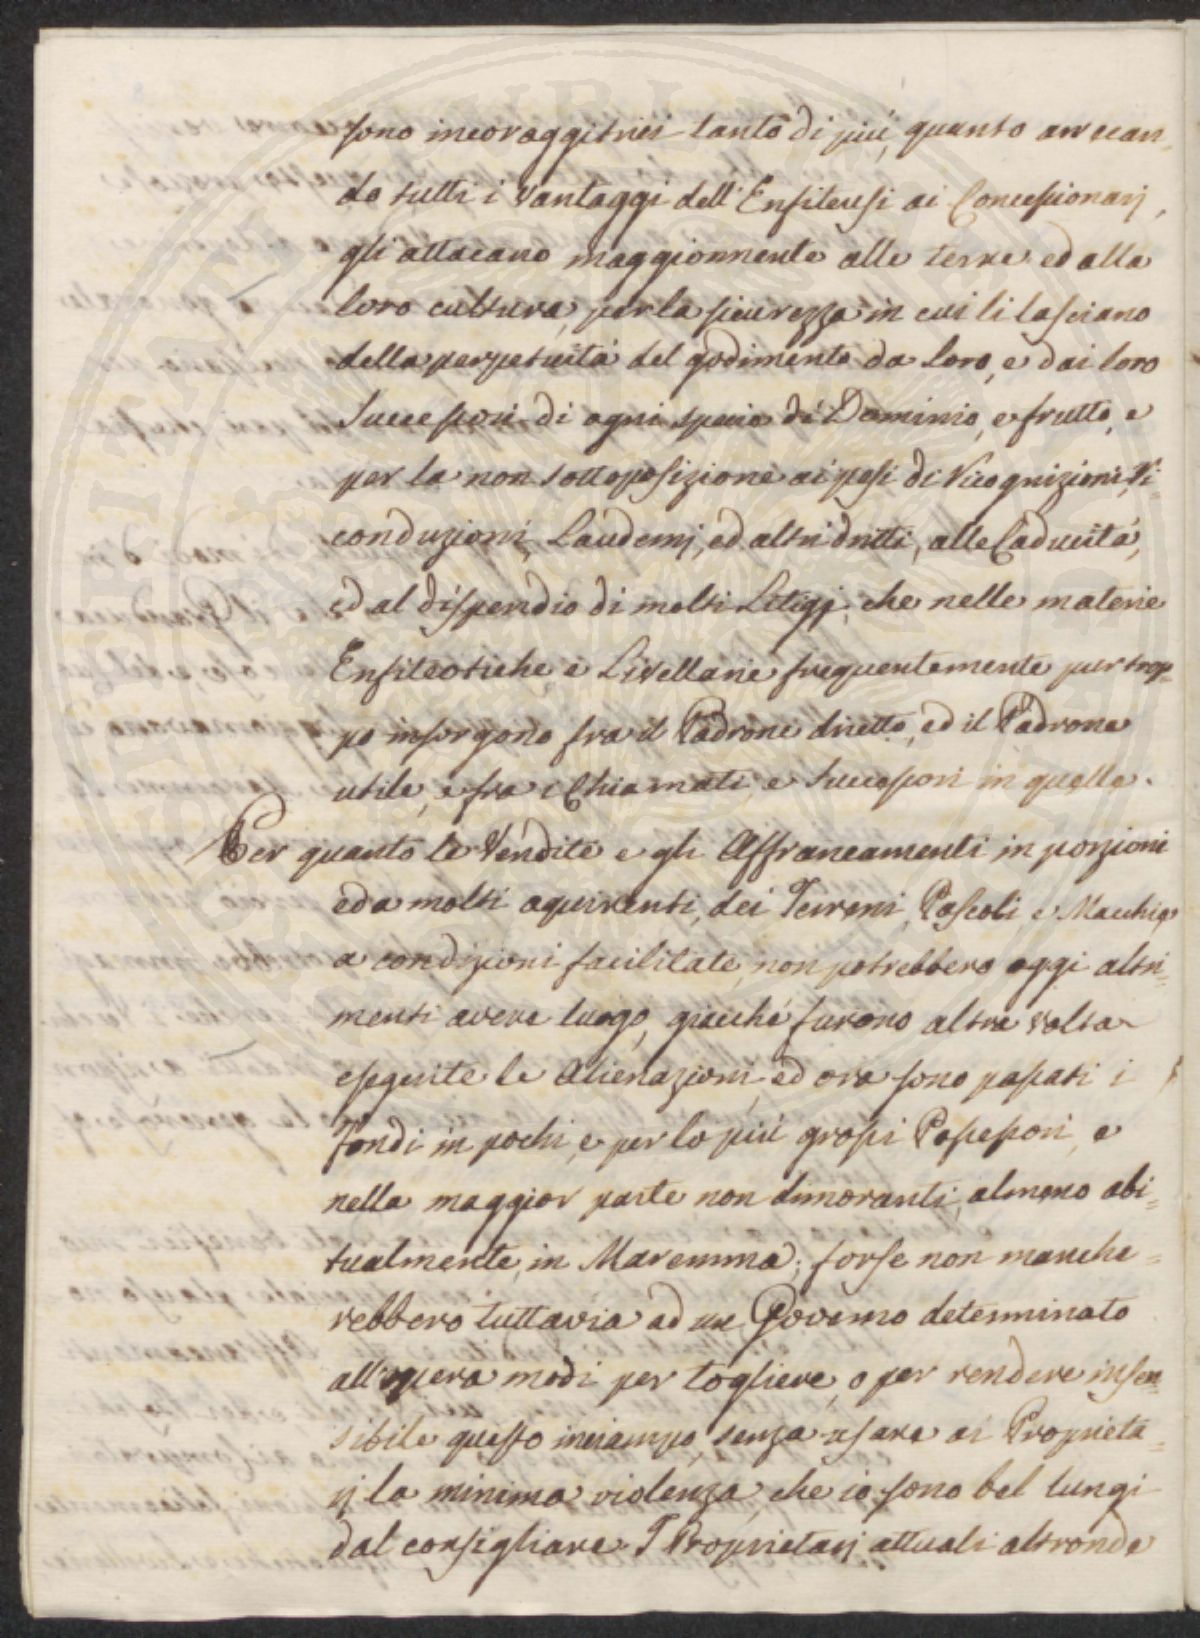 sono incoraggitrici tanto di più, quanto arrecan-
do tutti i Vantaggi dell'Enfiteusi ai Concessionarj,
gli attacano maggiormente alle terre ed alla
loro cultura, per la sicurezza in cui li lasciano
della perpetuità del godimento da loro, e dai loro
Successori di ogni specie di Dominio, e frutto, e
per la non sottoposizione ai pesi di Ricognizioni, Ri-
conduzioni, Laudemj, ed altri dritti, alle Caducità,
ed al dispendio di molti Litigj, che nelle materie
Enfiteotiche e Livellarie frequentemente pur trop-
po insorgono fra il Padrone diretto, ed il Padrone
utile, e fra i Chiamati, e Successori in quelle.
Per quanto le Vendite e gli Affrancamenti in porzioni
ed a molti aquirenti, dei Terreni, Pascoli e Macchie
a condizioni facilitate, non potrebbero oggi altri-
menti avere luogo, giacchè furono altra volta
eseguite le Alienazioni, ed ora sono passati i
Fondi in pochi, e per lo più grossi Possessori, e
nella maggior parte non dimoranti, almeno abi-
tualmente, in Maremma; forse non manche-
rebbero tuttavia ad un Governo determinato
all'opera modi per togliere, o per rendere insen-
sibile questo inciampo, senza usare ai Proprieta-
rj la minima violenza, che io sono bel lungi
dal consigliare. I Proprietarj attuali altronde